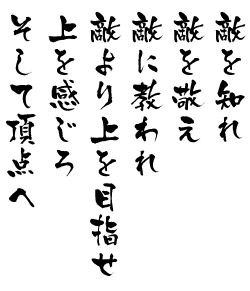 敵を知れ
敵を敬え
敵に教われ
敵より上を目指せ
上を感じろ
そして頂点へ